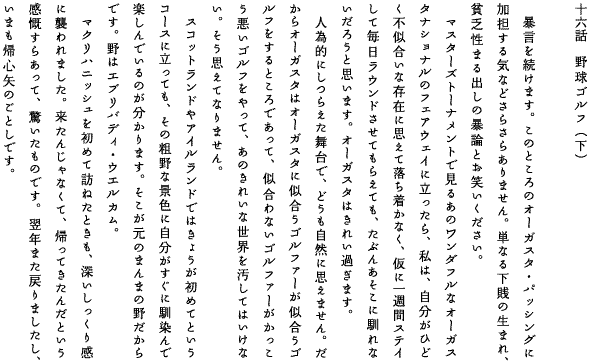 十六話　野球ゴルフ（下）
　暴言を続けます。このところのオーガスタ・バッシングに
加担する気などさらさらありません。単なる下賎の生まれ、
貧乏性まる出しの暴論とお笑いください。
　マスターズトーナメントで見るあのワンダフルなオーガス
タナショナルのフェアウェイに立ったら、私は、自分がひど
く不似合いな存在に思えて落ち着かなく、仮に一週間ステイ
して毎日ラウンドさせてもらえても、たぶんあそこに馴れな
いだろうと思います。オーガスタはきれい過ぎます。
　人為的にしつらえた舞台で、どうも自然に思えません。だ
からオーガスタはオーガスタに似合うゴルファーが似合うゴ
ルフをするところであって、似合わないゴルファーがかっこ
う悪いゴルフをやって、あのきれいな世界を汚してはいけな
い。そう思えてなりません。
　スコットランドやアイルランドではきょうが初めてという
コースに立っても、その粗野な景色に自分がすぐに馴染んで
楽しんでいるのが分かります。そこが元のまんまの野だから
です。野はエブリバディ・ウエルカム。
　マクリハニッシュを初めて訪ねたときも、深いしっくり感
に襲われました。来たんじゃなくて、帰ってきたんだという
感慨すらあって、驚いたものです。翌年また戻りましたし、
いまも帰心矢のごとしです。